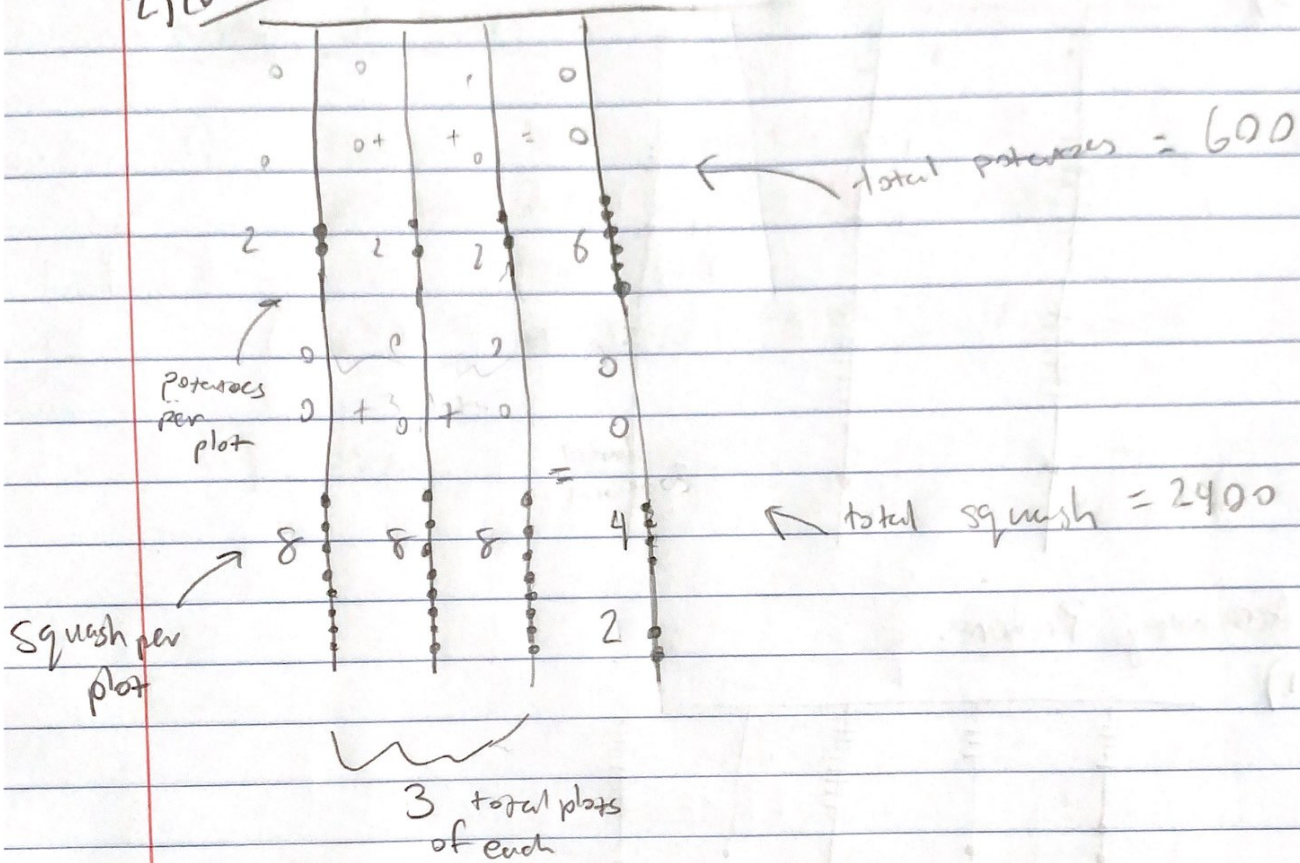 0 0 0
0 0+ + 0 = 0
total potatoes = 600
2 2 2 6
0 0
potatoes
per
plot
0 + 0 + 0 0
=
8 8 8 4
total squash = 2400
Squash per
plot
2
3 total plots
of each